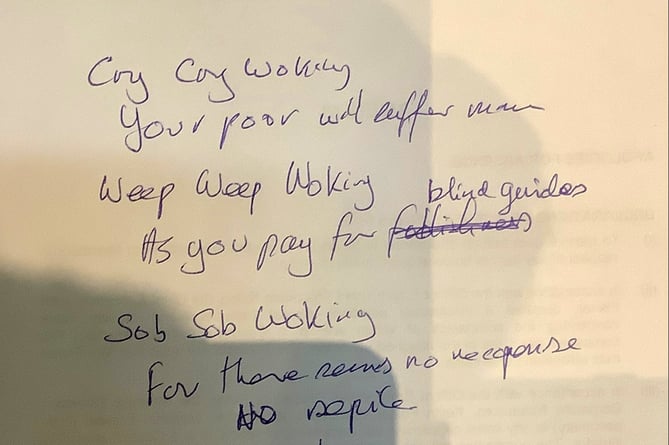 Cry Cry Woking
Your poor will suffer man
Weep Weep Woking
blind guides
As you pay for foolishness
Sob Sob Woking
For there seems no response
No respite